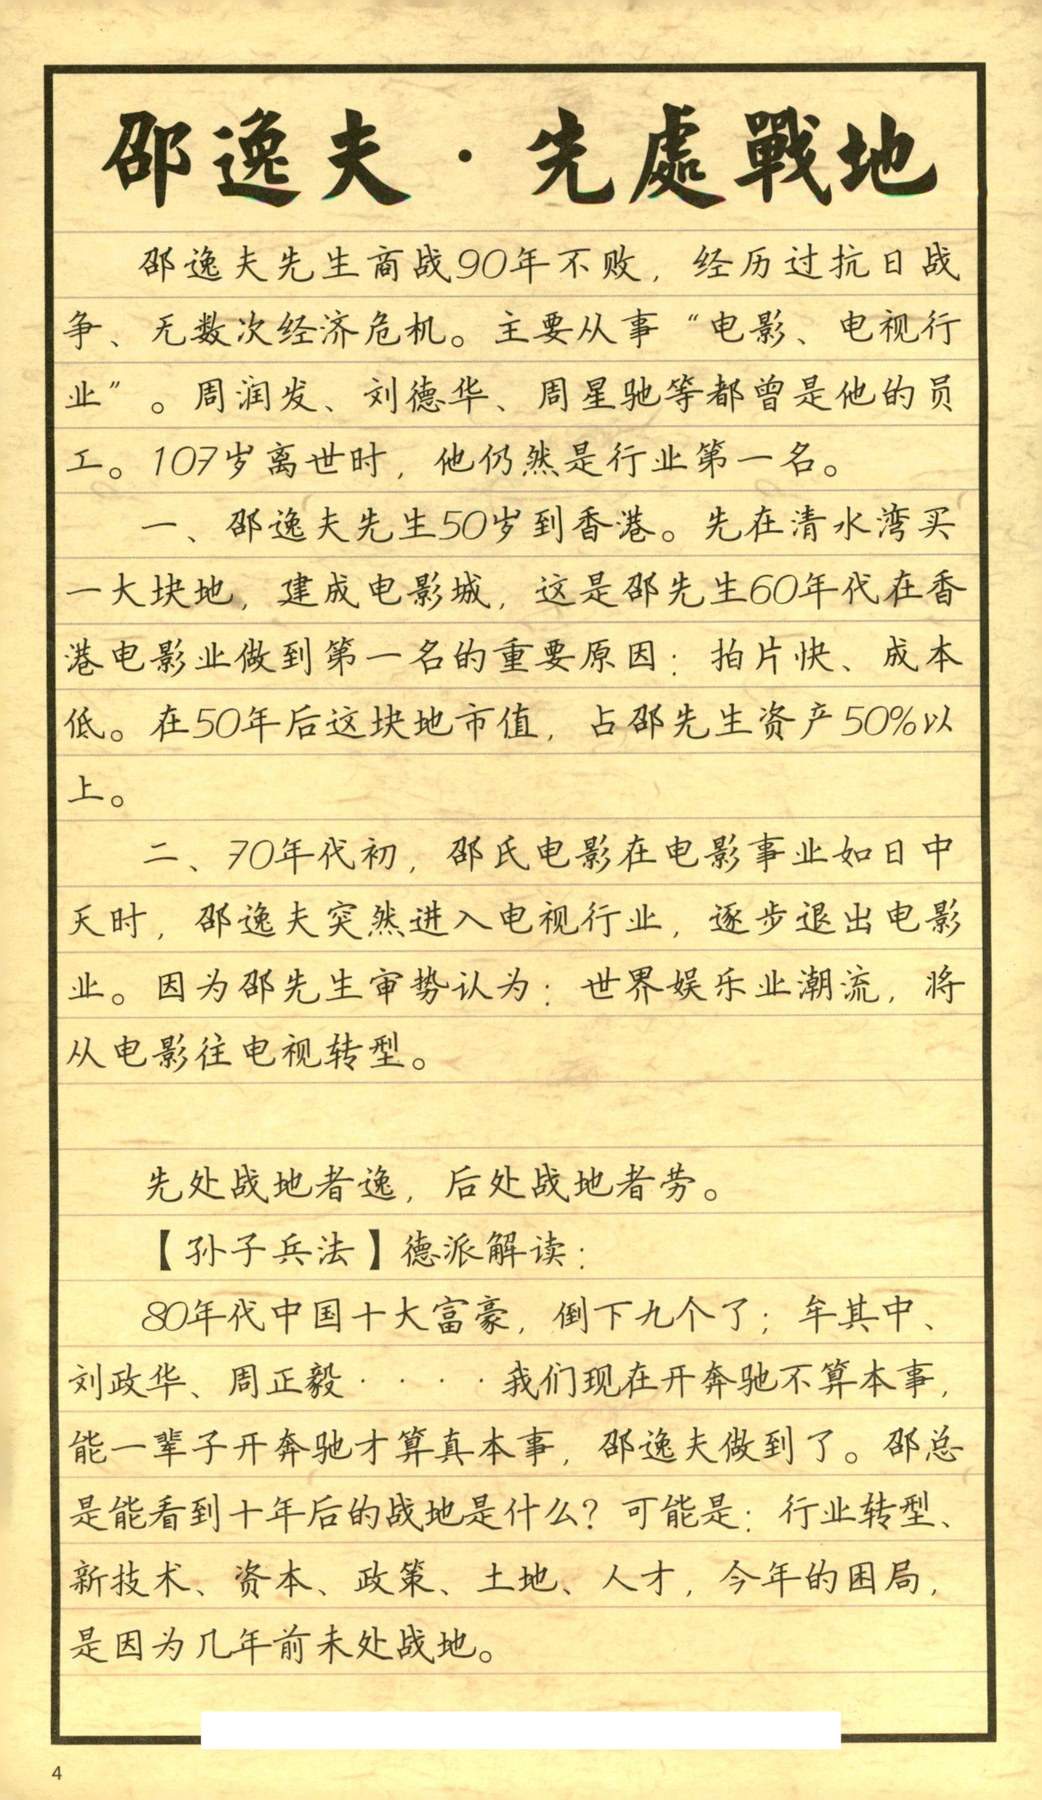 邵逸夫·先處戰地
邵逸夫先生商战90年不败，经历过抗日战
争、无数次经济危机。主要从事“电影、电视行
业”。周润发、刘德华、周星驰等都曾是他的员
工。107岁离世时，他仍然是行业第一名。
一、邵逸夫先生50岁到香港。先在清水湾买
一大块地，建成电影城，这是邵先生60年代在香
港电影业做到第一名的重要原因：拍片快、成本
低。在50年后这块地市值，占邵先生资产50%以
上。
二、70年代初，邵氏电影在电影事业如日中
天时，邵逸夫突然进入电视行业，逐步退出电影
业。因为邵先生审势认为：世界娱乐业潮流，将
从电影往电视转型。
先处战地者逸，后处战地者劳。
【孙子兵法】德派解读：
80年代中国十大富豪，倒下九个了；牟其中、
刘政华、周正毅····我们现在开奔驰不算本事，
能一辈子开奔驰才算真本事，邵逸夫做到了。邵总
是能看到十年后的战地是什么？可能是：行业转型、
新技术、资本、政策、土地、人才，今年的困局，
是因为几年前未处战地。
4